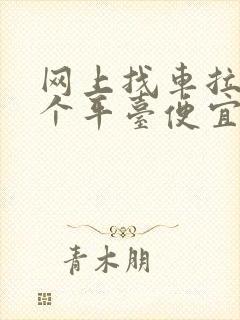 网上找車拉
个平臺便宜
青木朋